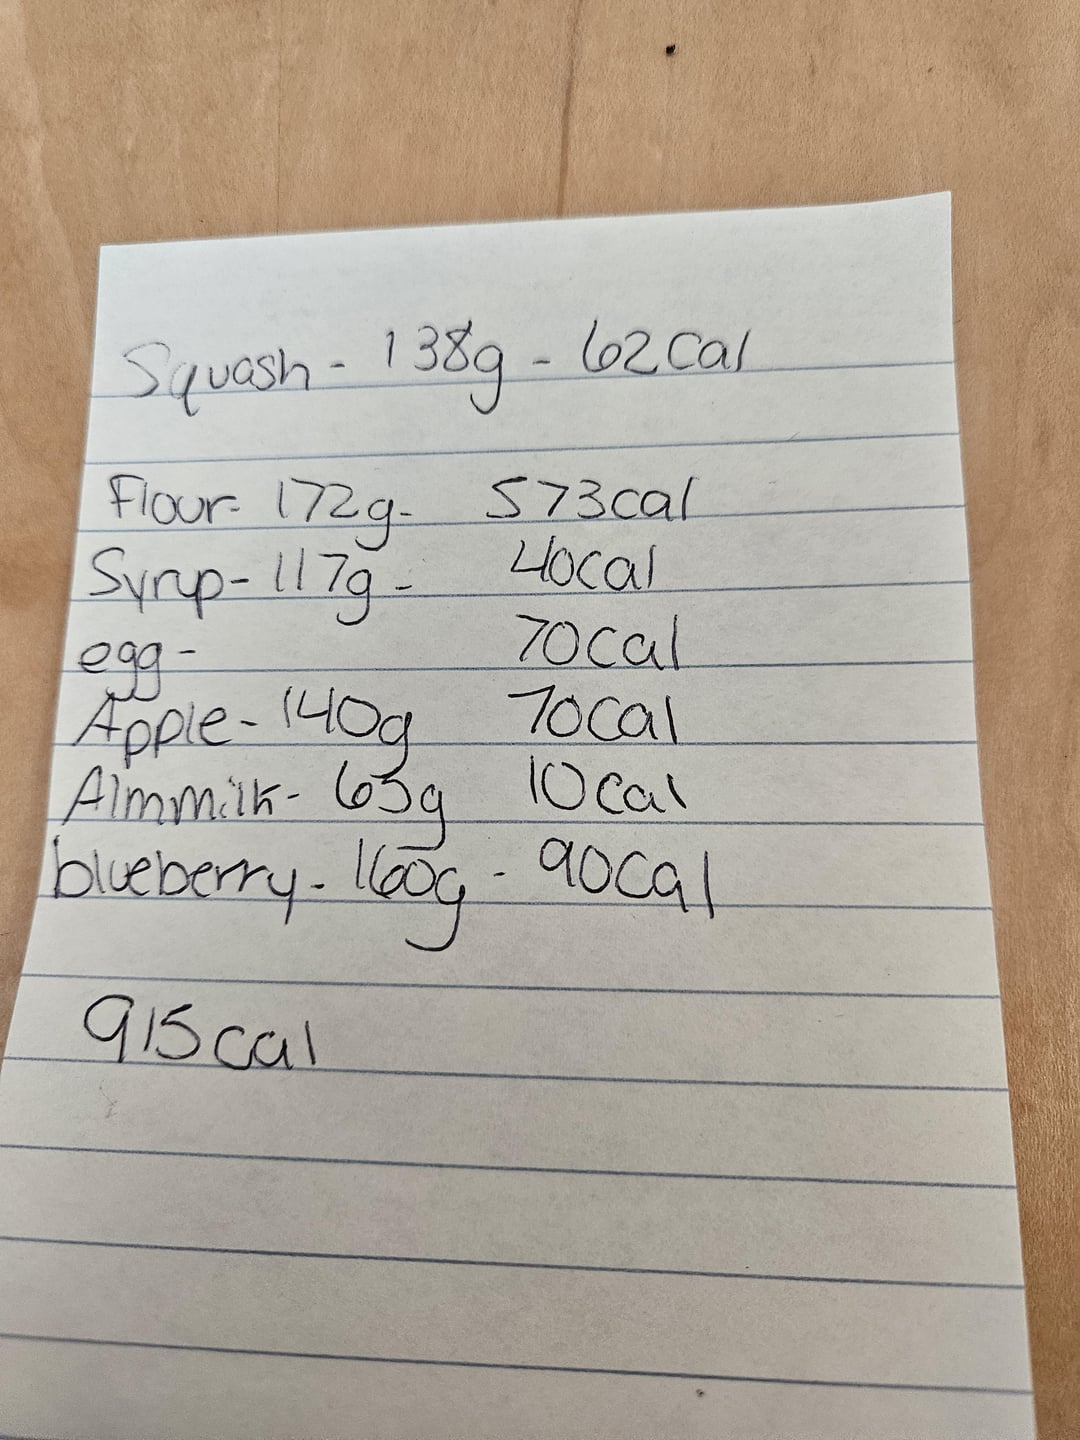 Squash - 138g - 62Cal
Flour- 172g- 573cal
Syrup- 117g - 40cal
egg - 70cal
Apple- 140g 70cal
Almmilk- 65g 10cal
blueberry- 160g - 90cal
915cal